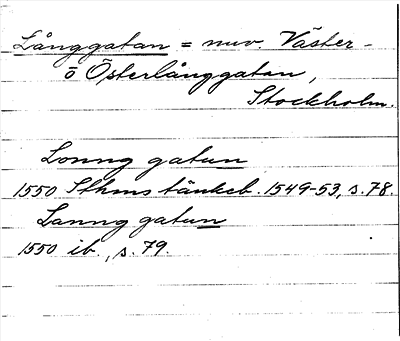 Långgatan = nuv. Väster-
o Österlånggatan,
Stockholm.
Lonng gatun
1550 Sthms tänkeb. 1549-53, s. 78.
Lanng gatun
1550 ib., s. 79